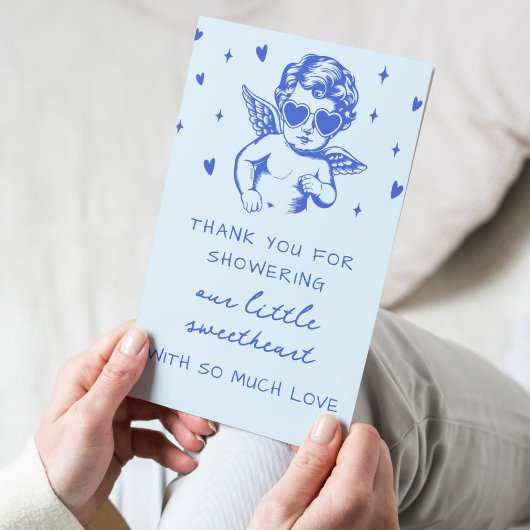 THANK YOU FOR
SHOWERING
our little
sweetheart
WITH SO MUCH LOVE